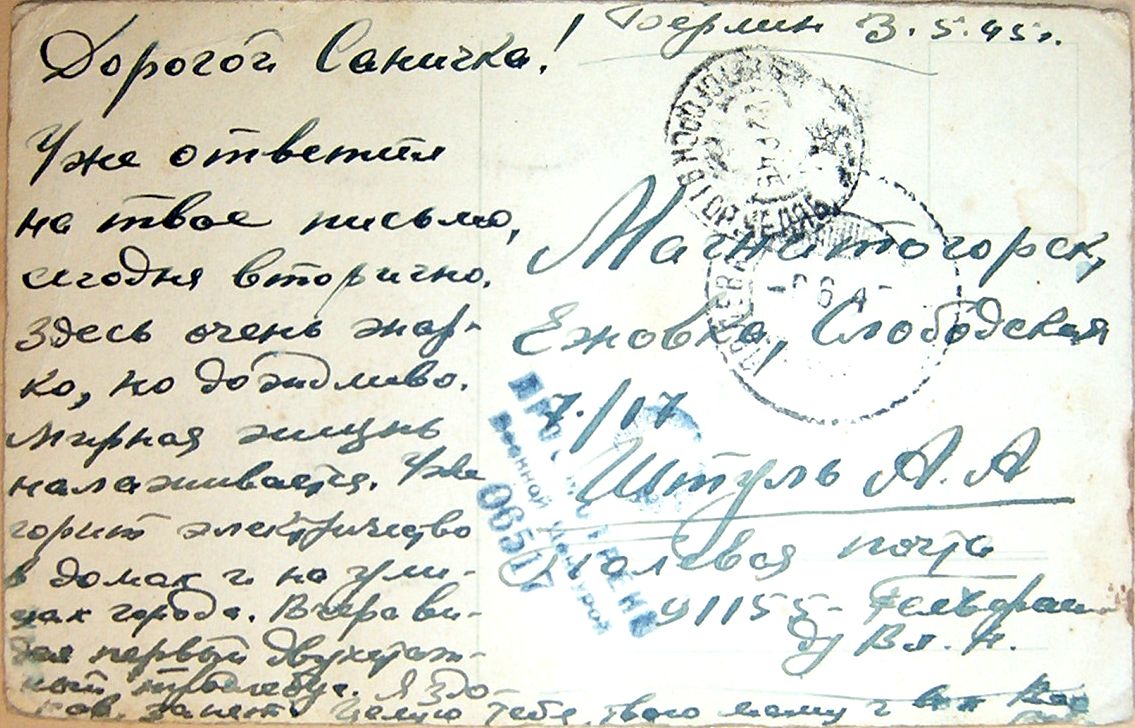 Берлин 3.5.45г.
Дорогой Саничка!
Уже ответил
на твое письмо,
сегодня вторично.
Здесь очень жар-
ко, но дождливо.
Мирная жизнь
налаживается. Уже
горит электричество
в домах и на ули-
цах города. Вчера ви-
дел первый двухэтаж-
ный троллебус. Я здо-
ров, занят. Целую тебя, твою маму и
Магнитогорск,
Ежовка, Слободская
7/17
Штуль А.А
полевая почта
91155-
Вл. Н.
МАГНИТОГОРСК
ЧЕЛЯБ.
Просмотрено
Военной Цензурой
06517